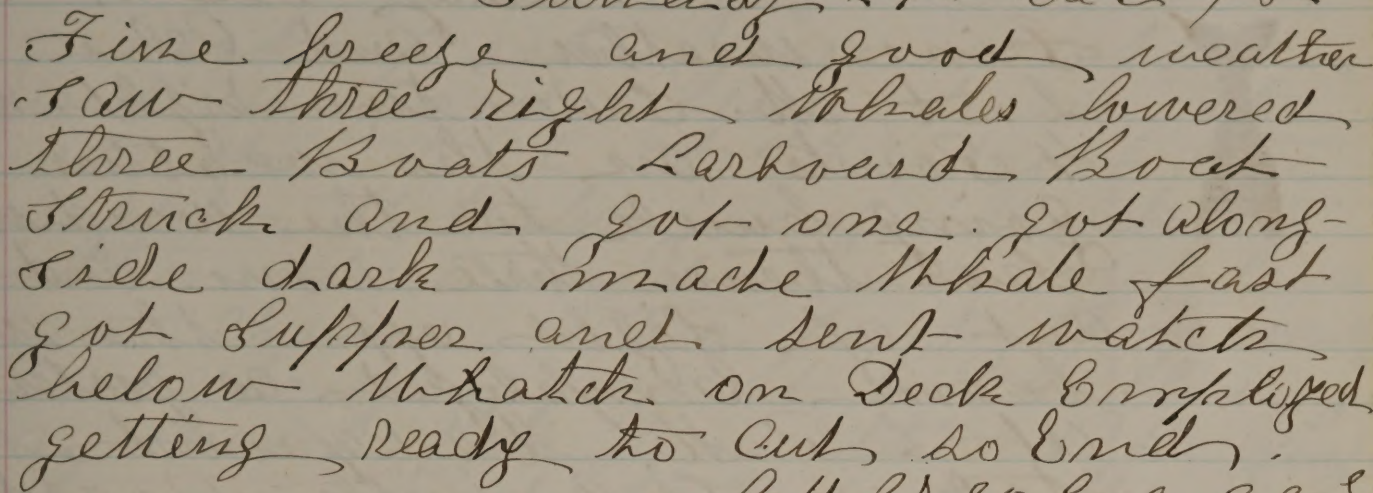 Fine breeze and good weather
Saw three right Whales lowered
three Boats Larboard Boat
Struck and got one. got along-
side dark made Whale fast
got Supper and sent watch
below Whatch on Deck Employed
getting ready to Cut so End.